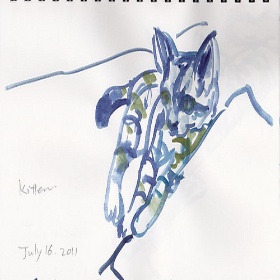 Kitten
July 16. 2011